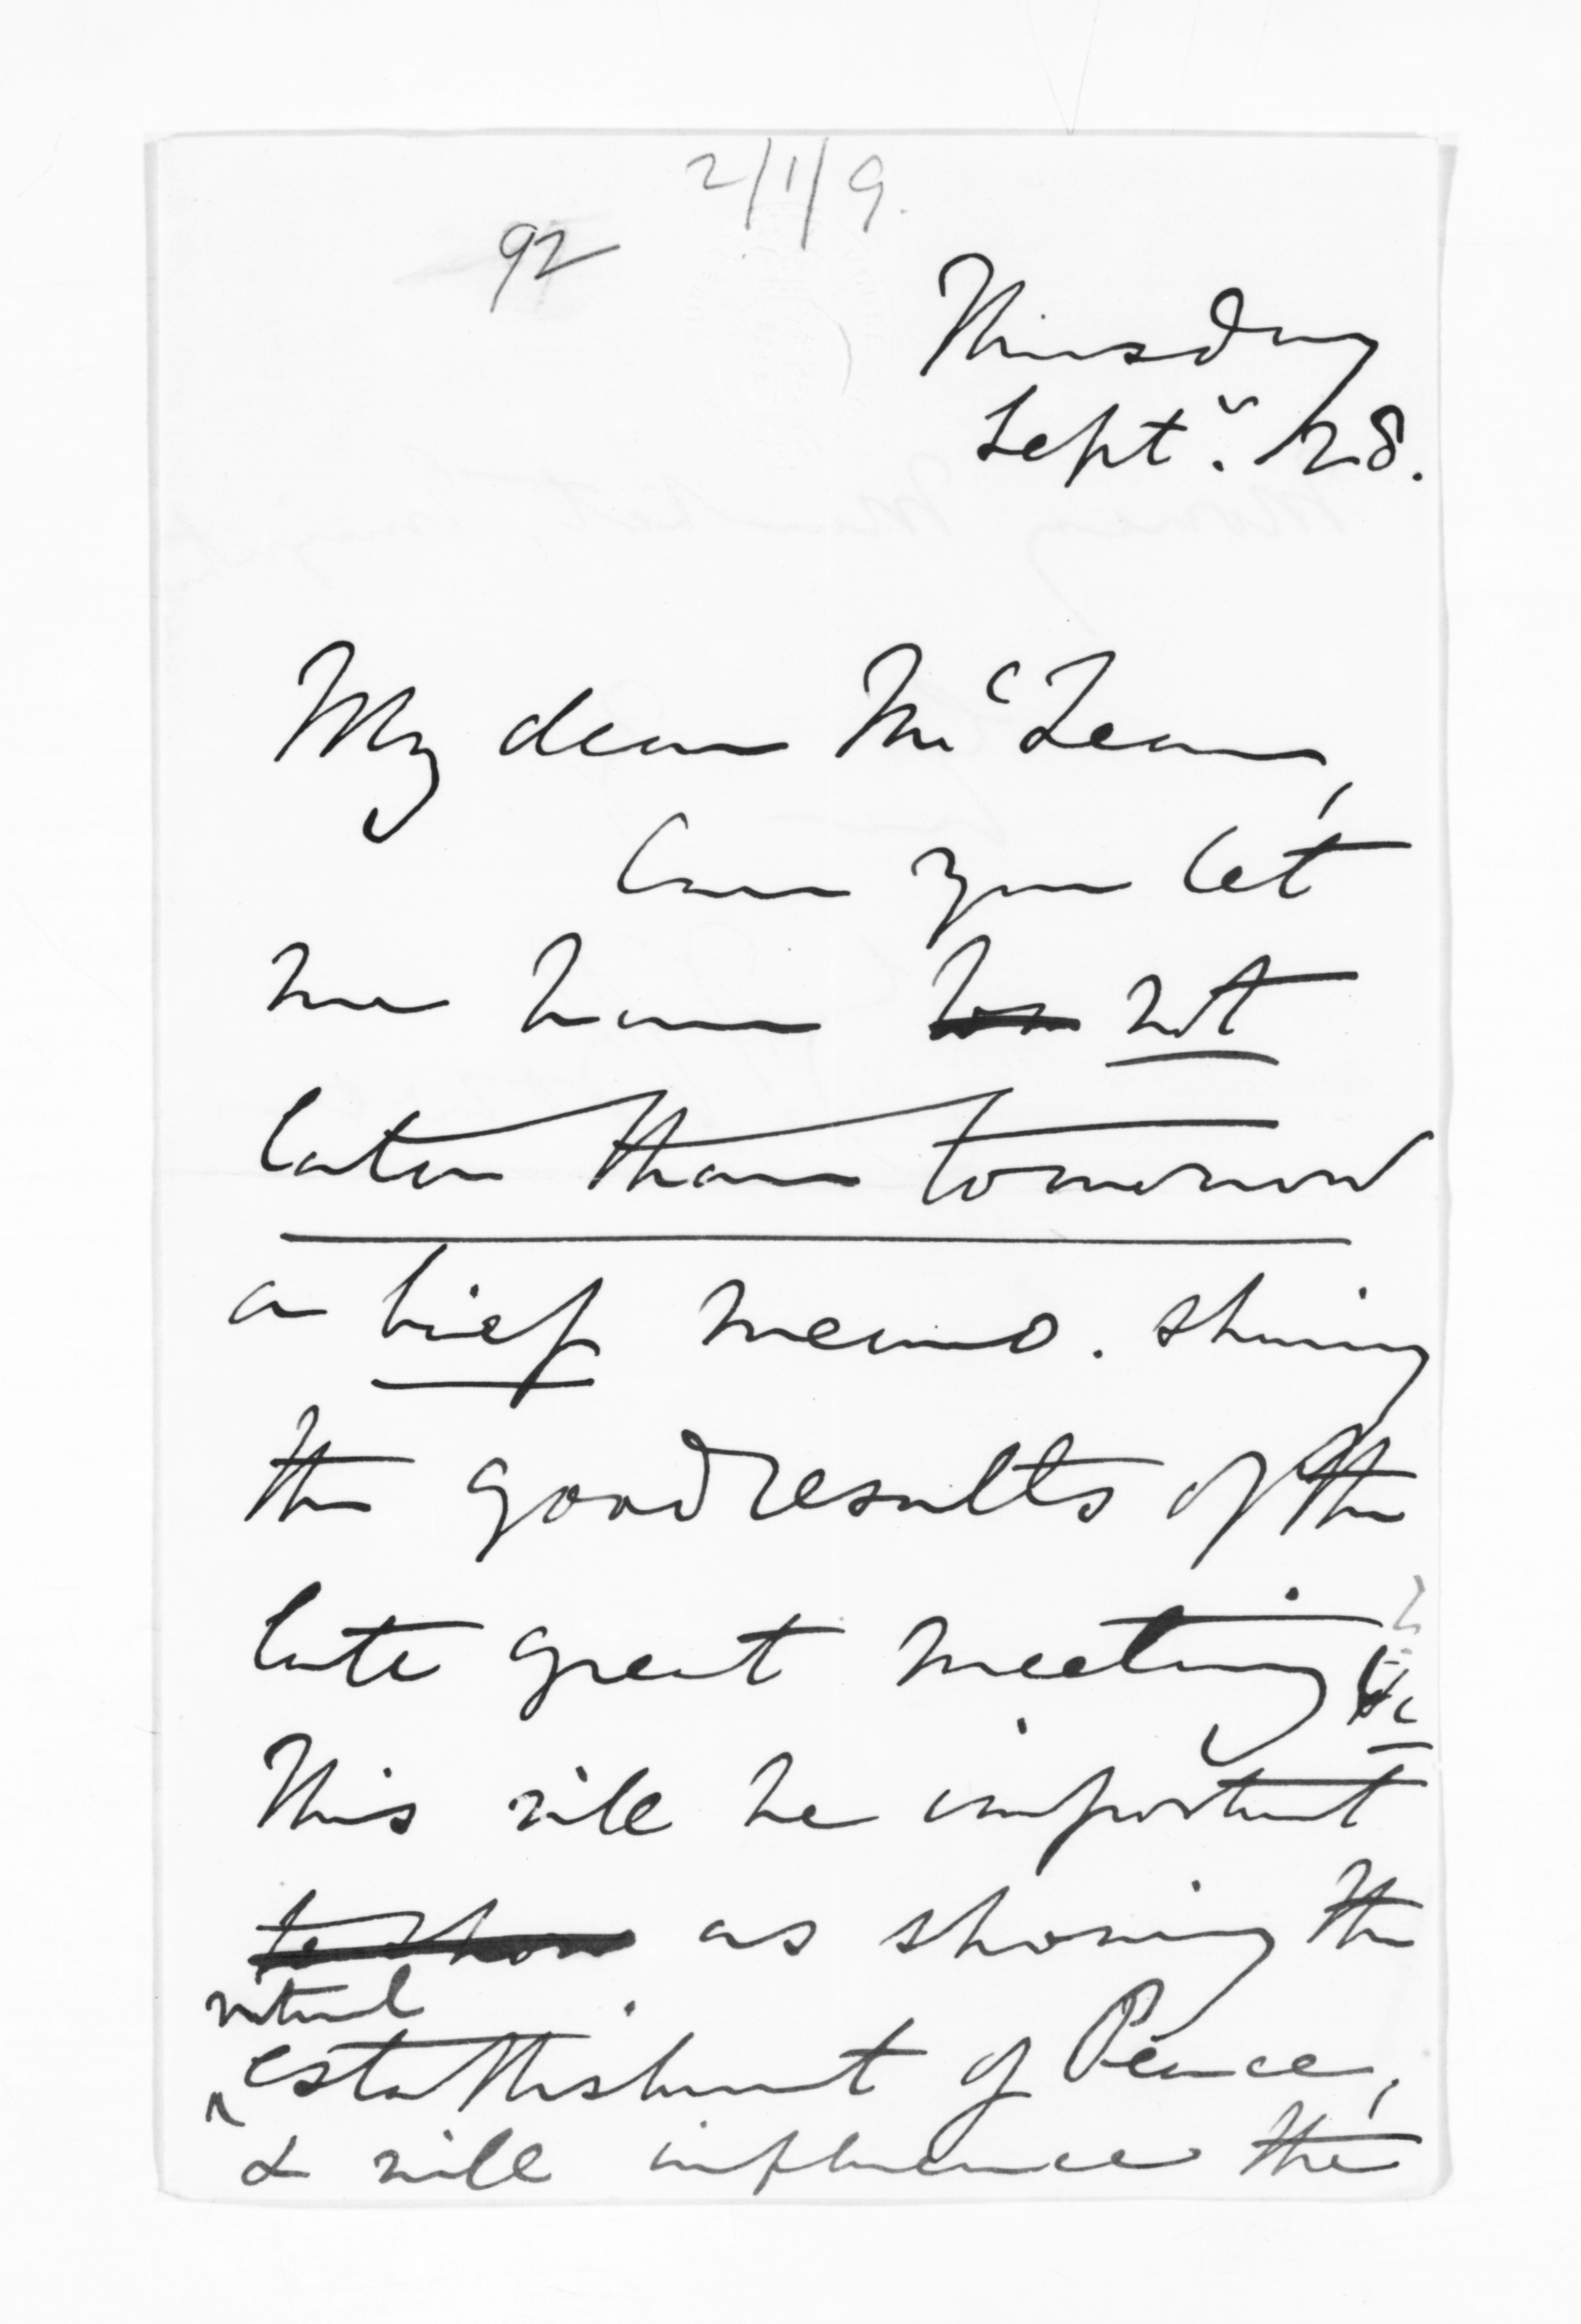 2/1/9.
92
Thursday
Septr. 28.
My dear McLean,
Can you let
me have not
later than tomorrow
a brief memo. showing
the good results of the
late great meeting &c
This will be important
to show as showing the
virtual
establishment of Peace,
& will influence the